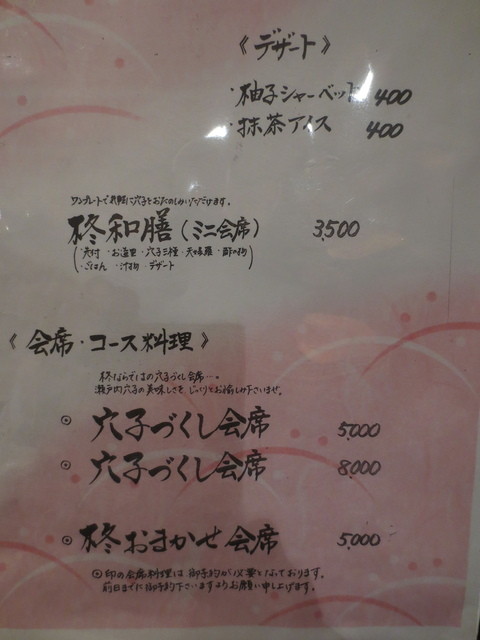 《デザート》
・柚子シャーベット 400
・抹茶アイス 400
ワンプレートで気軽に穴子をおたのしみいただけます。
柊和膳(ミニ会席) 3,500
(・先付・お造里・穴子三種・天婦羅・酢の物
・ごはん・汁物・デザート)
《会席・コース料理》
柊ならではの穴子づくし会席…。
瀬戸内穴子の美味しさをじっくりとお愉しみ下さいませ。
◎穴子づくし会席 5,000
◎穴子づくし会席 8,000
◎柊おまかせ会席 5,000
◎印の会席料理は御予約が必要となっております。
前日までに御予約下さいますようお願い申し上げます。